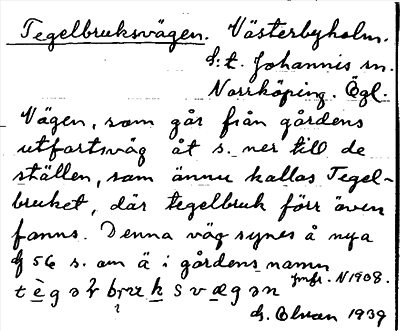 Tegelbruksvägen. Västerbyholm.
S:t. Johannis sn.
Norrköping. Ögl.
Vägen, som går från gårdens
utfartsväg åt s. ner till de
ställen, som ännu kallas Tegel-
bruket, där tegelbruk förr även
fanns. Denna väg synes å nya
56 s. om ä i gårdens namn
jmfr. N1908.
1939